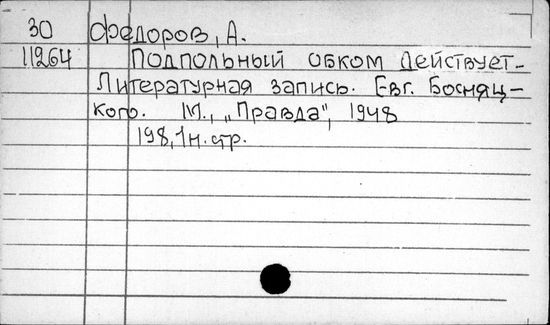 30 Федоров, А.
11264 Подпольный обком действует.-
Литературная запись. Евг. Босняц-
кого. М., „Правда", 1948
198, 1 н. стр.